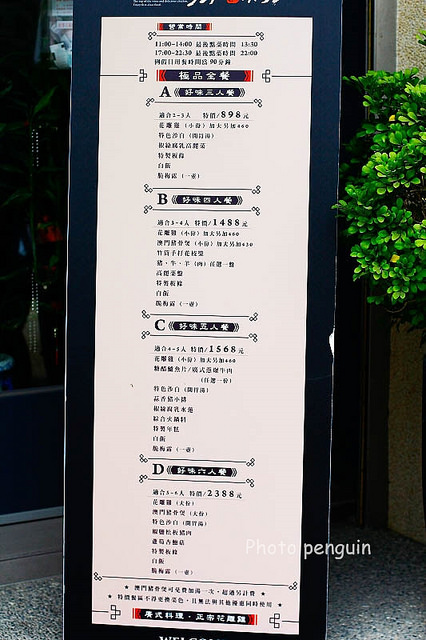 營業時間
11:00-14:00 最後點菜時間 13:30
17:00-22:30 最後點菜時間 22:00
例假日用餐時間為 90 分鐘
極品全餐
A 好味三人餐
適合2-3人 特價/898元
花雕雞（小份）加大另加460
特色沙白（開胃湯）
椒絲腐乳高麗菜
特製板條
白飯
脆梅露（一壺）
B 好味四人餐
適合3-4人 特價/1488元
花雕雞（小份）加大另加460
澳門豬骨煲（小份）加大另加430
竹筒手打花枝漿
豬、牛、羊（肉）任選一盤
高麗菜盤
特製板條
白飯
脆梅露（一壺）
C 好味五人餐
適合4-5人 特價/1568元
花雕雞（小份）加大另加460
糖醋鱸魚片/廣式蔥爆牛肉
（任選一份）
特色沙白（開胃湯）
蒜香豬小排
椒絲腐乳水蓮
綜合火鍋料
特製年糕
白飯
脆梅露（一壺）
D 好味六人餐
適合5-6人 特價/2388元
花雕雞（大份）
澳門豬骨煲（大份）
特色沙白（開胃湯）
椒鹽松板豬肉
蘆筍杏鮑菇
特製板條
白飯
脆梅露（一壺）
★ 澳門豬骨煲可免費加湯一次，超過另計費 ★
★ 特價餐區不得更換菜色，且無法與其他優惠同時使用 ★
廣式料理・正宗花雕雞
Photo penguin